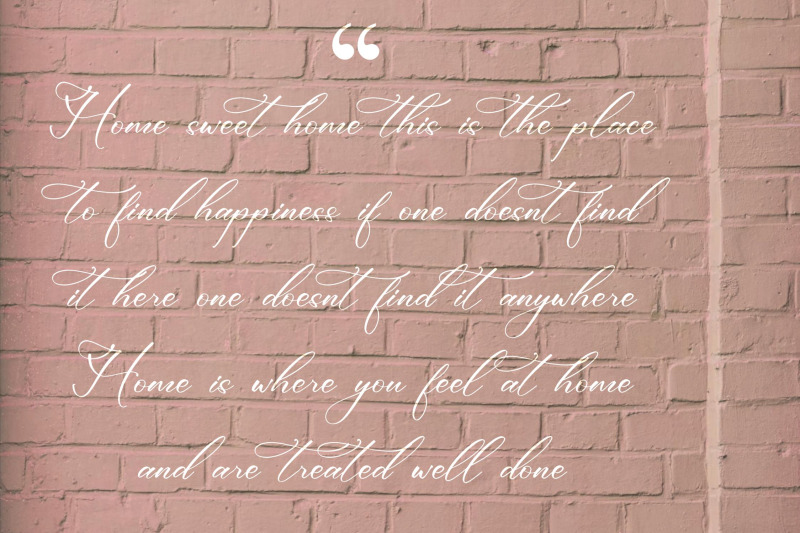 “
Home sweet home this is the place
to find happiness if one doesnt find
it here one doesnt find it anywhere
Home is where you feel at home
and are treated well done